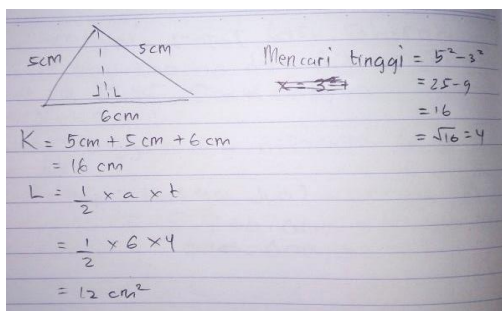 5cm
5cm
6cm
Mencari tinggi = 5² - 3²
= 25 - 9
= 16
= √16 = 4
K = 5cm + 5cm + 6cm
= 16 cm
L = 1/2 x a x t
= 1/2 x 6 x 4
= 12 cm²